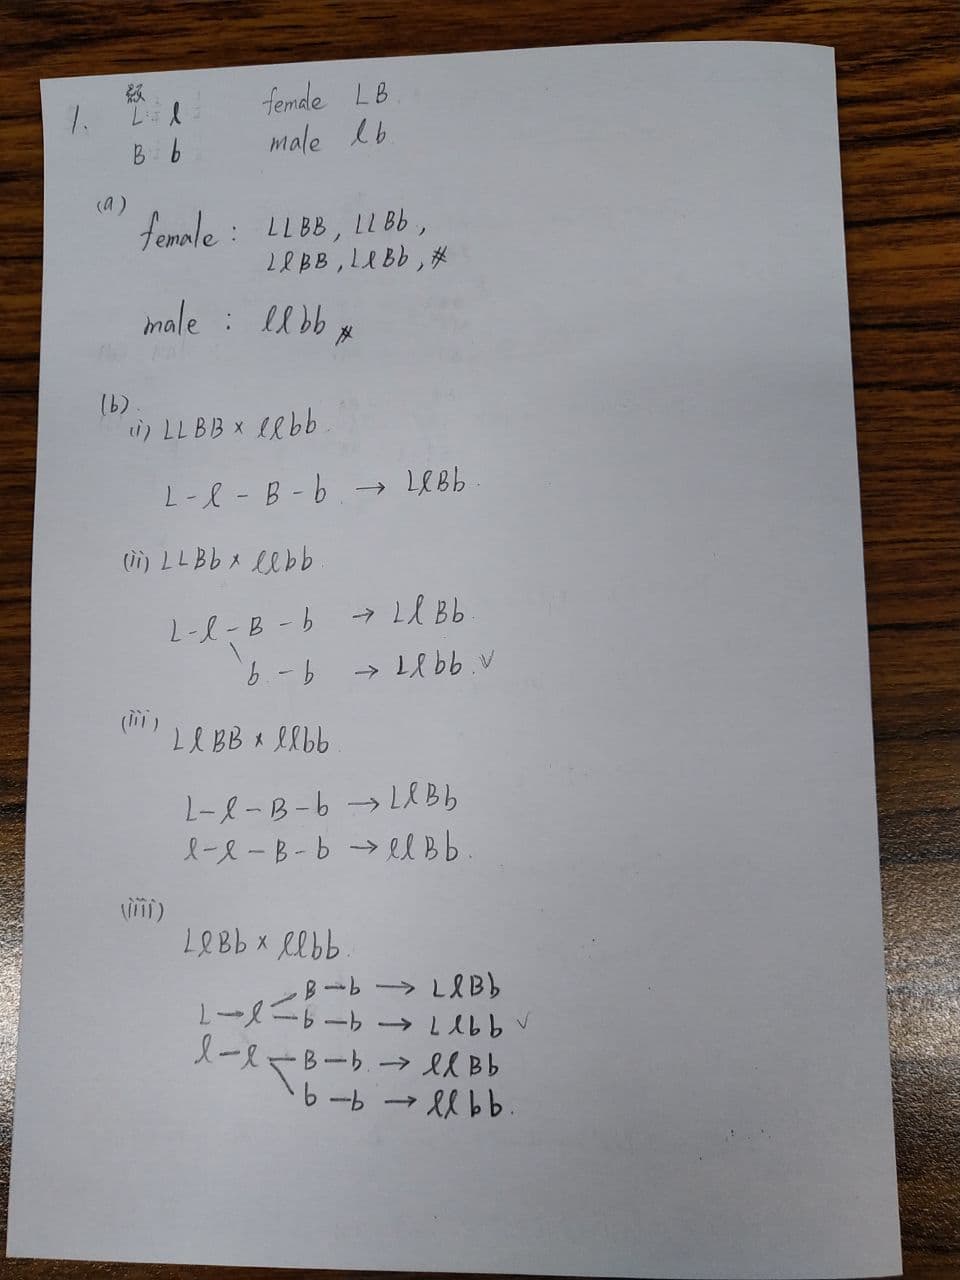 1.
L l female LB
B b male lb
(a)
female : LLBB, LLBb,
LlBB, LlBb, #
male : llbb #
(b)
(i) LLBB x llbb
L - l - B - b → LlBb.
(ii) LLBb x llbb.
L - l - B - b → LlBb.
\ b - b → Llbb. ✓
(iii)
LlBB x llbb
L - l - B - b → LlBb
l - l - B - b → llBb.
(iiii)
LlBb x llbb.
B - b → LlBb
L - l - b - b → Llbb ✓
l - l - B - b → llBb
\ b - b → llbb.